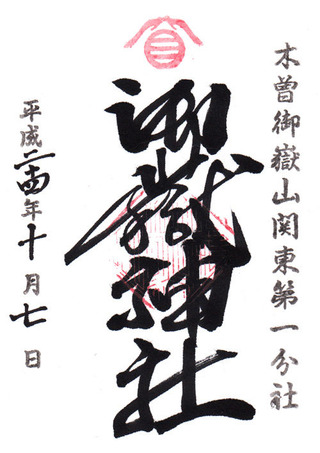 木曽御嶽山関東第一分社
御嶽神社
平成二十四年十月七日